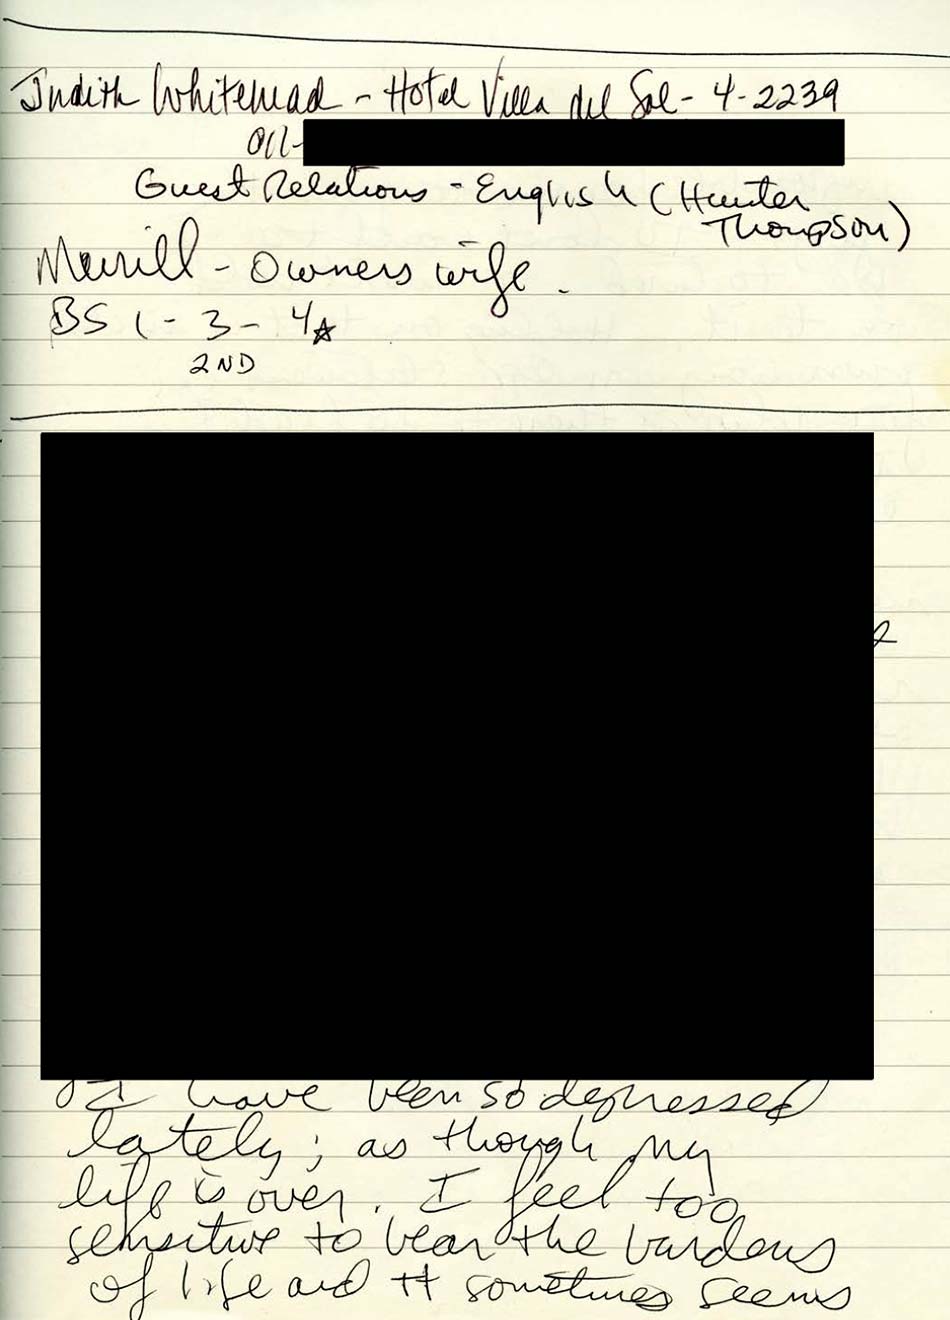 Judith Whitehead - Hotel Villa del Sol - 4-2239
011-
Guest Relations - English (Hunter
Thompson)
Merrill - Owners wife.
BS 1 - 3 - 4☆
2ND
I have been so depressed
lately; as though my
life is over. I feel too
sensitive to bear the burdens
of life and it sometimes seems